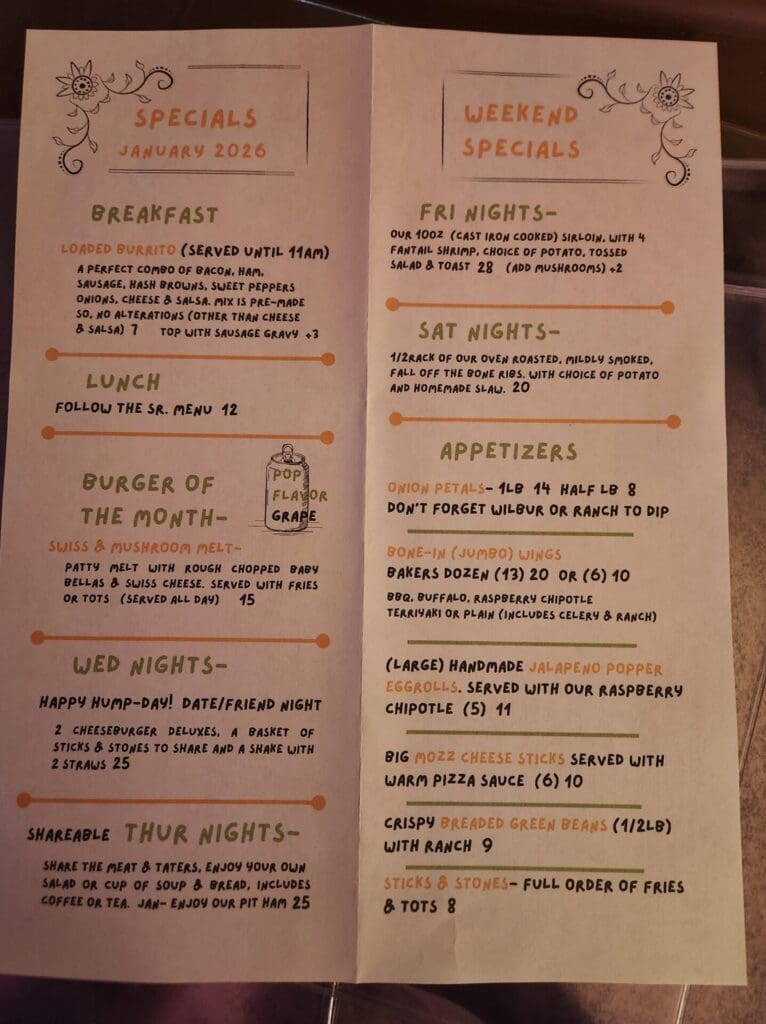 SPECIALS
JANUARY 2026
BREAKFAST
LOADED BURRITO (SERVED UNTIL 11AM)
A PERFECT COMBO OF BACON, HAM,
SAUSAGE, HASH BROWNS, SWEET PEPPERS
ONIONS, CHEESE & SALSA. MIX IS PRE-MADE
SO, NO ALTERATIONS (OTHER THAN CHEESE
& SALSA) 7 TOP WITH SAUSAGE GRAVY +3
LUNCH
FOLLOW THE SR. MENU 12
BURGER OF
THE MONTH-
POP
FLAVOR
GRAPE
SWISS & MUSHROOM MELT-
PATTY MELT WITH ROUGH CHOPPED BABY
BELLAS & SWISS CHEESE. SERVED WITH FRIES
OR TOTS (SERVED ALL DAY) 15
WED NIGHTS-
HAPPY HUMP-DAY! DATE/FRIEND NIGHT
2 CHEESEBURGER DELUXES, A BASKET OF
STICKS & STONES TO SHARE AND A SHAKE WITH
2 STRAWS 25
SHAREABLE THUR NIGHTS-
SHARE THE MEAT & TATERS, ENJOY YOUR OWN
SALAD OR CUP OF SOUP & BREAD, INCLUDES
COFFEE OR TEA. JAN- ENJOY OUR PIT HAM 25
WEEKEND
SPECIALS
FRI NIGHTS-
OUR 10OZ (CAST IRON COOKED) SIRLOIN, WITH 4
FANTAIL SHRIMP, CHOICE OF POTATO, TOSSED
SALAD & TOAST 28 (ADD MUSHROOMS) +2
SAT NIGHTS-
1/2RACK OF OUR OVEN ROASTED, MILDLY SMOKED,
FALL OFF THE BONE RIBS. WITH CHOICE OF POTATO
AND HOMEMADE SLAW. 20
APPETIZERS
ONION PETALS- 1LB 14 HALF LB 8
DON'T FORGET WILBUR OR RANCH TO DIP
BONE-IN (JUMBO) WINGS
BAKERS DOZEN (13) 20 OR (6) 10
BBQ, BUFFALO, RASPBERRY CHIPOTLE
TERRIYAKI OR PLAIN (INCLUDES CELERY & RANCH)
(LARGE) HANDMADE JALAPENO POPPER
EGGROLLS. SERVED WITH OUR RASPBERRY
CHIPOTLE (5) 11
BIG MOZZ CHEESE STICKS SERVED WITH
WARM PIZZA SAUCE (6) 10
CRISPY BREADED GREEN BEANS (1/2LB)
WITH RANCH 9
STICKS & STONES- FULL ORDER OF FRIES
& TOTS 8